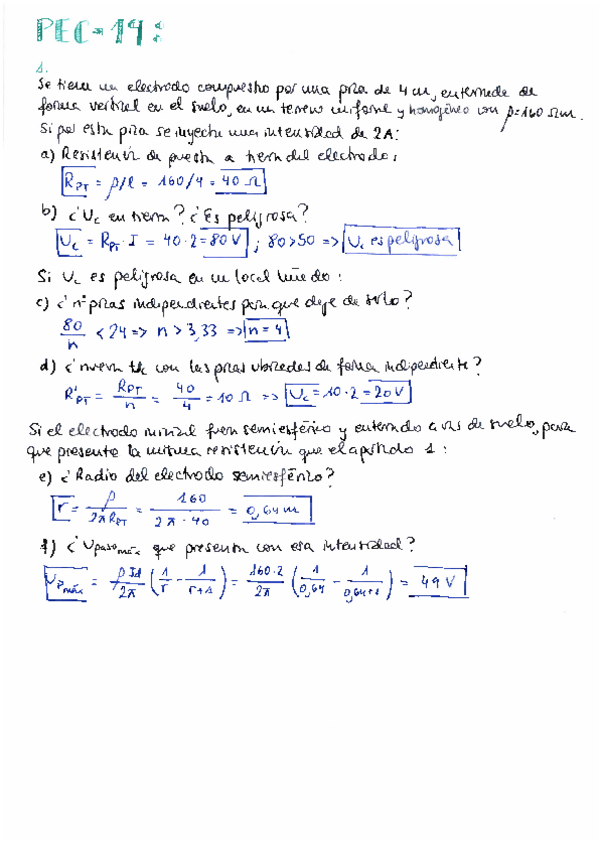 PEC-14:
1.
Se tiene un electrodo compuesto por una pica de 4 m, enterrada de
forma vertical en el suelo, en un terreno uniforme y homogéneo con ρ=160 Ωm.
Si por esta pica se inyecta una intensidad de 2A:
a) Resistencia de puesta a tierra del electrodo:
R_PT = ρ/l = 160/4 = 40 Ω
b) ¿Uc en tierra? ¿Es peligrosa?
Uc = R_PT · I = 40 · 2 = 80 V ; 80 > 50 => Uc es peligrosa
Si Uc es peligrosa en un local húmedo:
c) ¿nº picas independientes para que deje de serlo?
80/n < 24 => n > 3,33 => n = 4
d) ¿nueva Uc con las picas ubicadas de forma independiente?
R'_PT = R_PT/n = 40/4 = 10 Ω => Uc = 10 · 2 = 20 V
Si el electrodo inicial fuera semiesférico y enterrado a ras de suelo, para
que presente la misma resistencia que el apartado 1:
e) ¿Radio del electrodo semiesférico?
r = ρ/2πR_PT = 160/2π · 40 = 0,64 m
f) ¿Upaso máx que presenta con esa intensidad?
Up máx = ρI1/2π (1/r - 1/r+1) = 160·2/2π (1/0,64 - 1/0,64+1) = 49 V